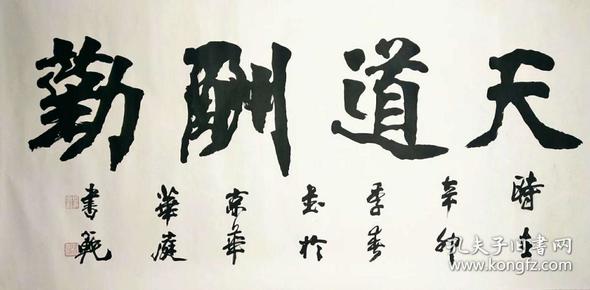 天道酬勤
時在
辛卯
季春
書於
京華
華庭
書範
孔夫子旧书网
www.kongfz.com